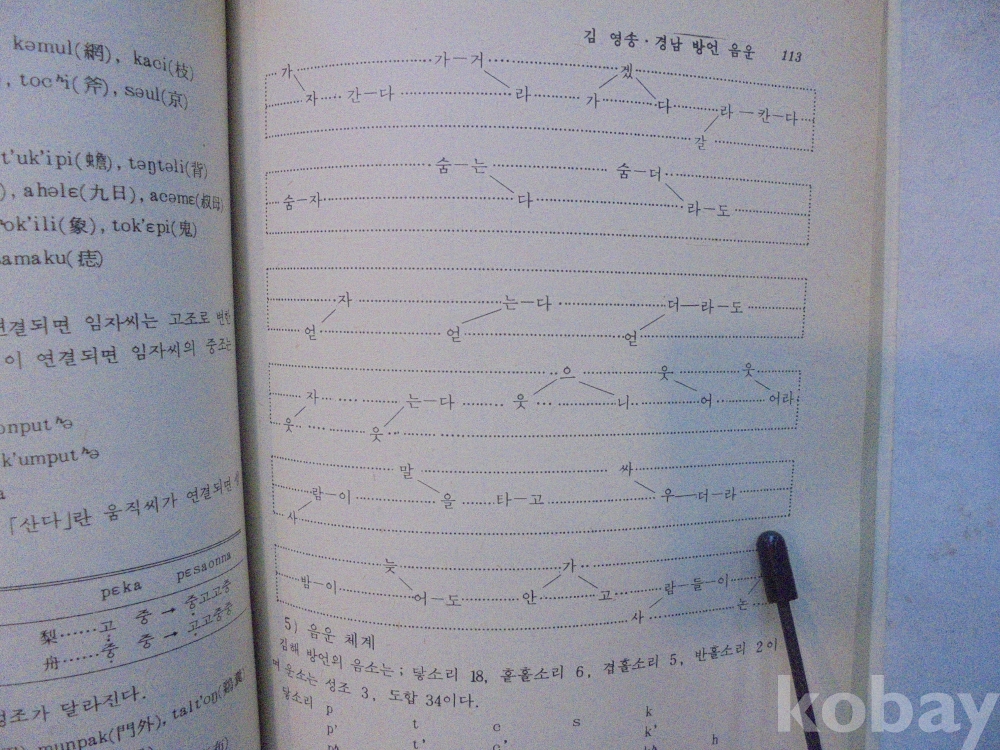 kəmul(網), kaci(枝)
tocʰi(斧), səul(京)
t'uk'ipi(蟾), təŋtəli(背)
ahəlɛ(九日), acəmɛ(叔母)
ok'ili(象), tok'ɛpi(鬼)
amaku(痣)
연결되면 임자씨는 고조로 변한
이 연결되면 임자씨의 중조는
onputʰə
k'umputʰə
「산다」란 움직씨가 연결되면
pɛka pɛsaonna
梨……고 중 → 중고고중
舟……중 중 → 고고중중
성조가 달라진다.
munpak(門外), talt'oŋ(鷄糞)
김 영송·경남 방언 음운 113
가 가—거 겠
자 간—다 라 가 다 라—칸—다
갈
숨—는 숨—더
숨—자 다 라—도
자 는—다 더—라—도
얻 얻 얻
으 웃 웃
자 는—다 웃 니 어 어라
웃 웃
말 싸
람—이 을 타—고 우—더—라
사
늦 가
밤—이 어—도 안 고 람—들—이
사 는
5) 음운 체계
김해 방언의 음소는 ; 닿소리 18, 홑홀소리 6, 겹홀소리 5, 반홀소리 2이
며 운소는 성조 3, 도합 34이다.
닿소리 p t c s k
p' t' c' k' h